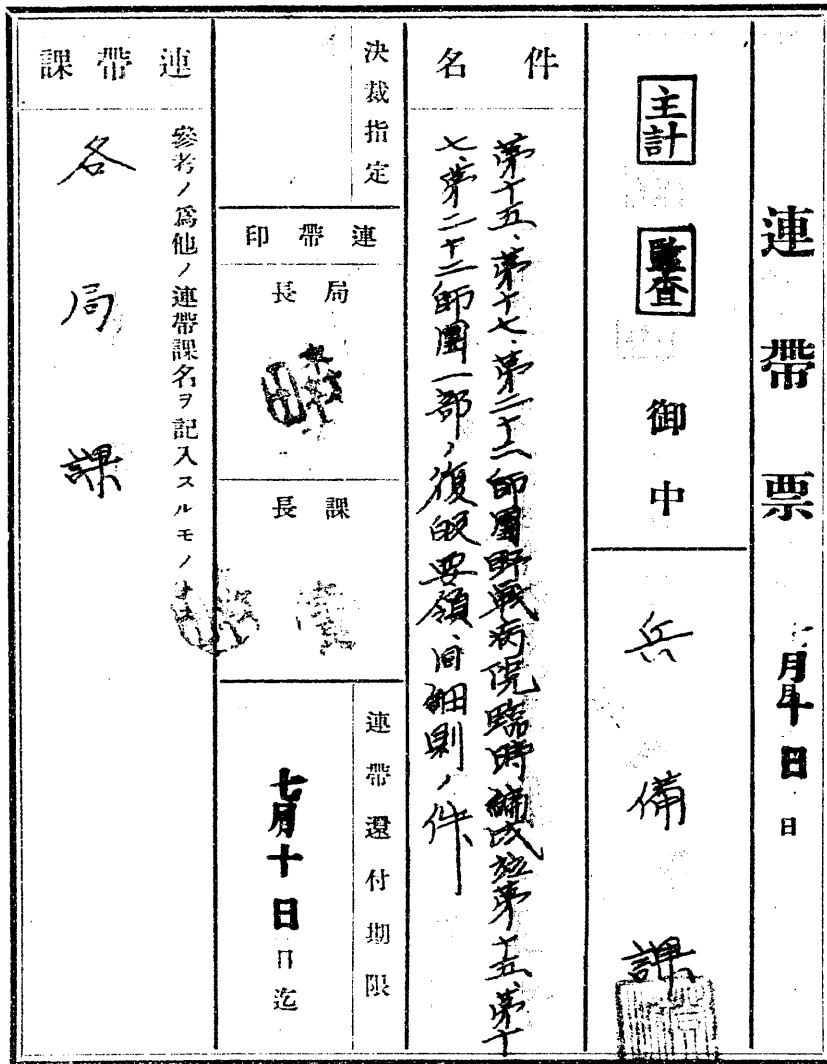 連帶票
七月十日 日
主計
監査
御中
兵備課
件名
第十五、第十七、第二十二師團野戰病院臨時編成竝第十五、第十
七、第二十二師團一部ノ復歸要領、同細則ノ件
決裁指定
連帶印
局長
課長
連帶還付期限
七月十日 日迄
連帶課
參考ノ爲他ノ連帶課名ヲ記入スルモノトス
各局課